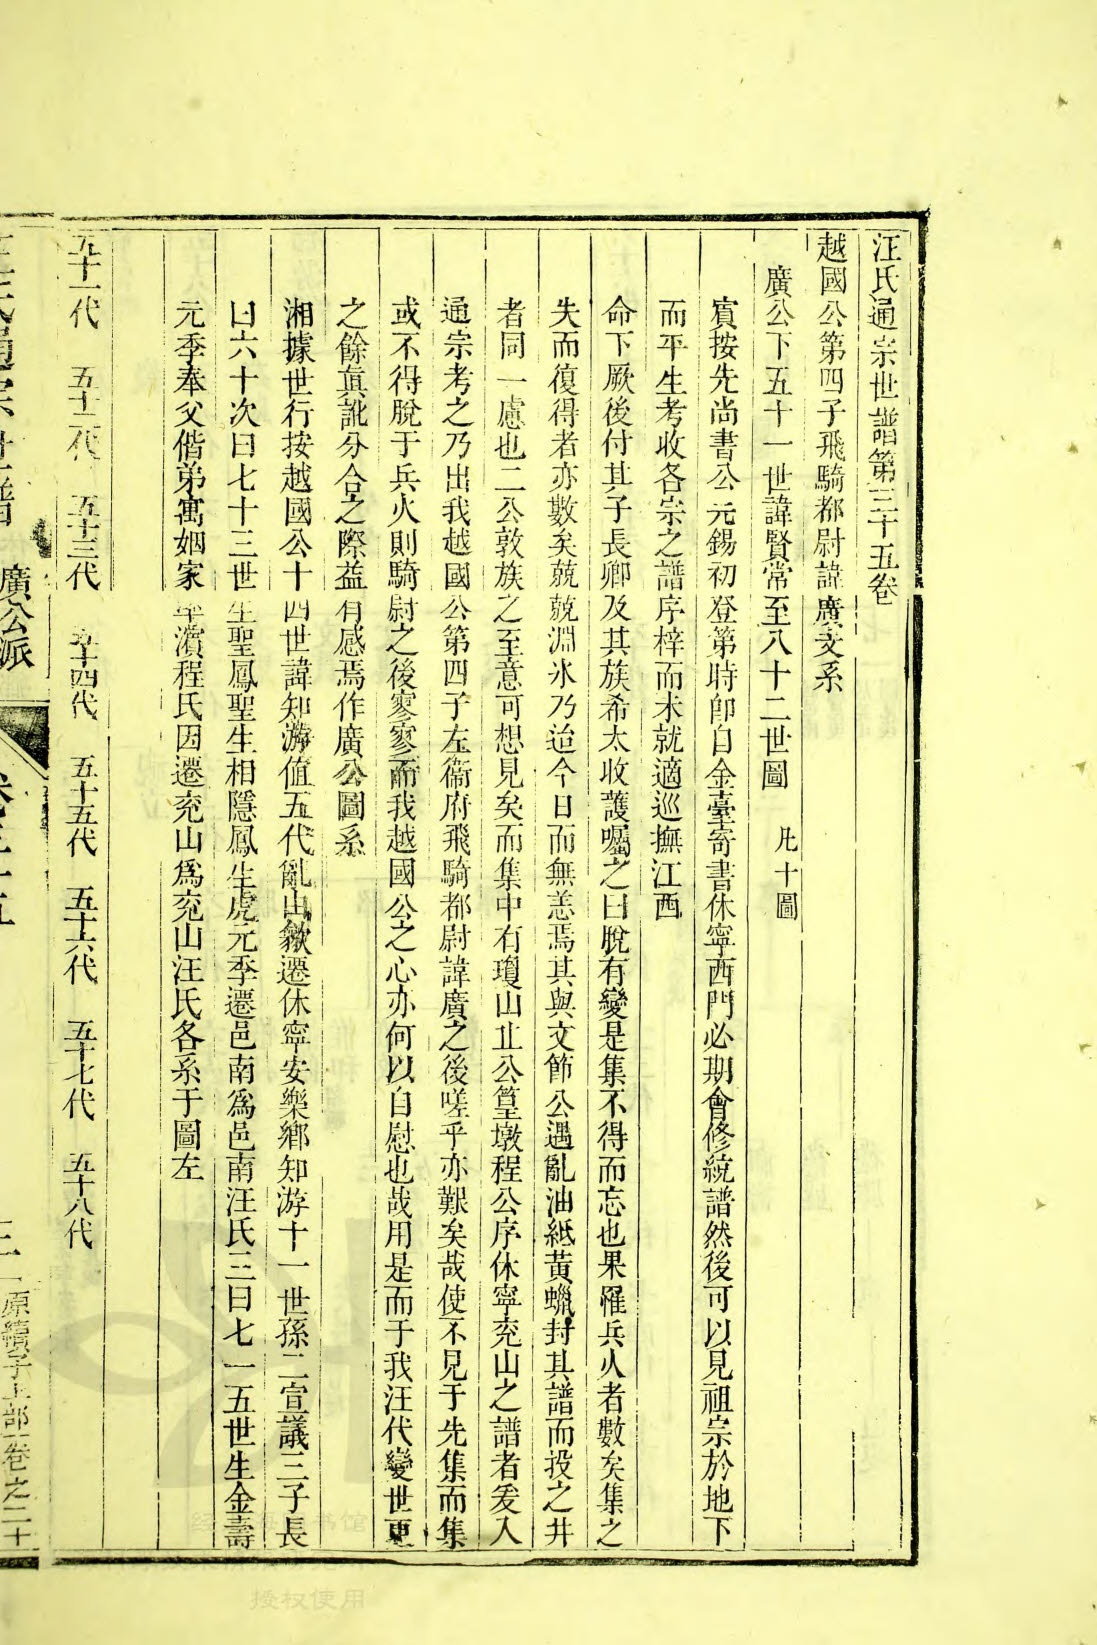 汪氏通宗世譜第三十五卷
越國公第四子飛騎都尉諱廣支系
廣公下五十一世諱賢常至八十二世圖 凡十圖
賔按先尚書公元錫初登第時卽自金臺寄書休寧西門必期會修統譜然後可以見祖宗於地下
而平生考收各宗之譜序梓而未就適巡撫江西
命下厥後付其子長卿及其族希太收護囑之曰脫有變是集不得而忘也果罹兵火者數矣集之
失而復得者亦數矣兢兢淵氷乃迨今日而無恙焉其與文節公遇亂油紙黃蠟封其譜而投之井
者同一慮也二公敦族之至意可想見矣而集中有瓊山止公篁墩程公序休寧兗山之譜者爰入
通宗考之乃出我越國公第四子左衞府飛騎都尉諱廣之後嗟乎亦艱矣哉使不見于先集而集
或不得脫于兵火則騎尉之後寥寥而我越國公之心亦何以自慰也哉用是而于我汪代變世更
之餘眞訛分合之際益有感焉作廣公圖系
湘據世行按越國公十四世諱知游值五代亂由歙遷休寧安樂鄉知游十一世孫二宣議三子長
曰六十次曰七十三世生聖鳳聖生相隱鳳生虎元季遷邑南爲邑南汪氏三曰七一五世生金壽
元季奉父偕弟寓姻家率濱程氏因遷兗山爲兗山汪氏各系于圖左
五十一代 五十二代 五十三代 五十四代 五十五代 五十六代 五十七代 五十八代
汪氏通宗世譜 廣公派 卷三十五
授权使用